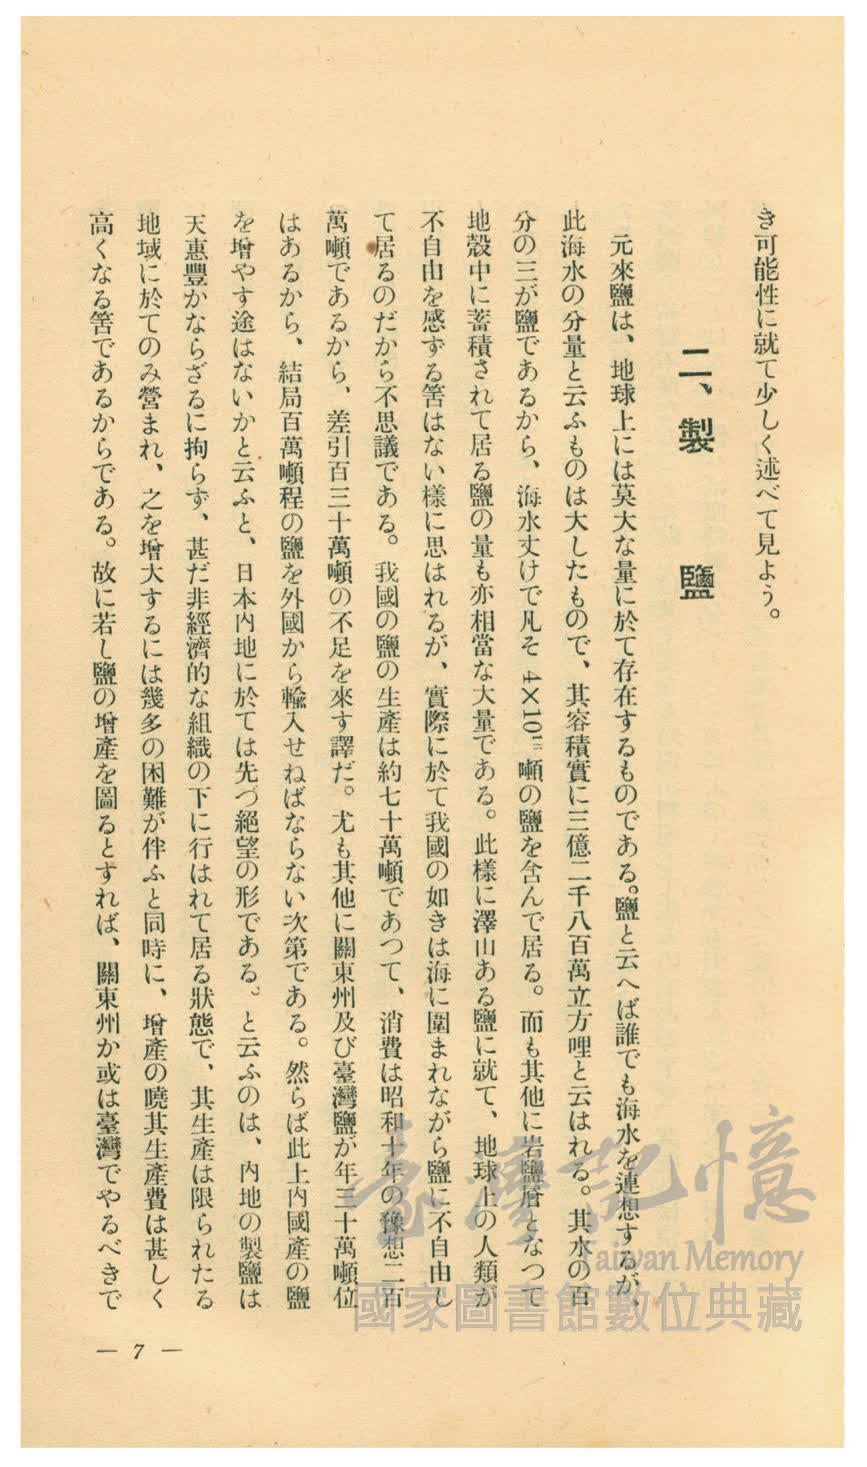 き可能性に就て少しく述べて見よう。
二、製鹽
元來鹽は、地球上には莫大な量に於て存在するものである。鹽と云へば誰でも海水を連想するが、
此海水の分量と云ふものは大したもので、其容積實に三億二千八百萬立方哩と云はれる。其水の百
分の三が鹽であるから、海水丈けで凡そ 4×10 噸の鹽を含んで居る。而も其他に岩鹽層となつて
地殼中に蓄積されて居る鹽の量も亦相當な大量である。此樣に澤山ある鹽に就て、地球上の人類が
不自由を感ずる筈はない樣に思はれるが、實際に於て我國の如きは海に圍まれながら鹽に不自由し
て居るのだから不思議である。我國の鹽の生產は約七十萬噸であつて、消費は昭和十年の豫想二百
萬噸であるから、差引百三十萬噸の不足を來す譯だ。尤も其他に關東州及び臺灣鹽が年三十萬噸位
はあるから、結局百萬噸程の鹽を外國から輸入せねばならない次第である。然らば此上內國產の鹽
を增やす途はないかと云ふと、日本內地に於ては先づ絕望の形である。と云ふのは、內地の製鹽は
天惠豐かならざるに拘らず、甚だ非經濟的な組織の下に行はれて居る狀態で、其生產は限られたる
地域に於てのみ營まれ、之を增大するには幾多の困難が伴ふと同時に、增產の曉其生產費は甚しく
高くなる筈であるからである。故に若し鹽の增產を圖るとすれば、關東州か或は臺灣でやるべきで
— 7 —
臺灣記憶
Taiwan Memory
國家圖書館數位典藏